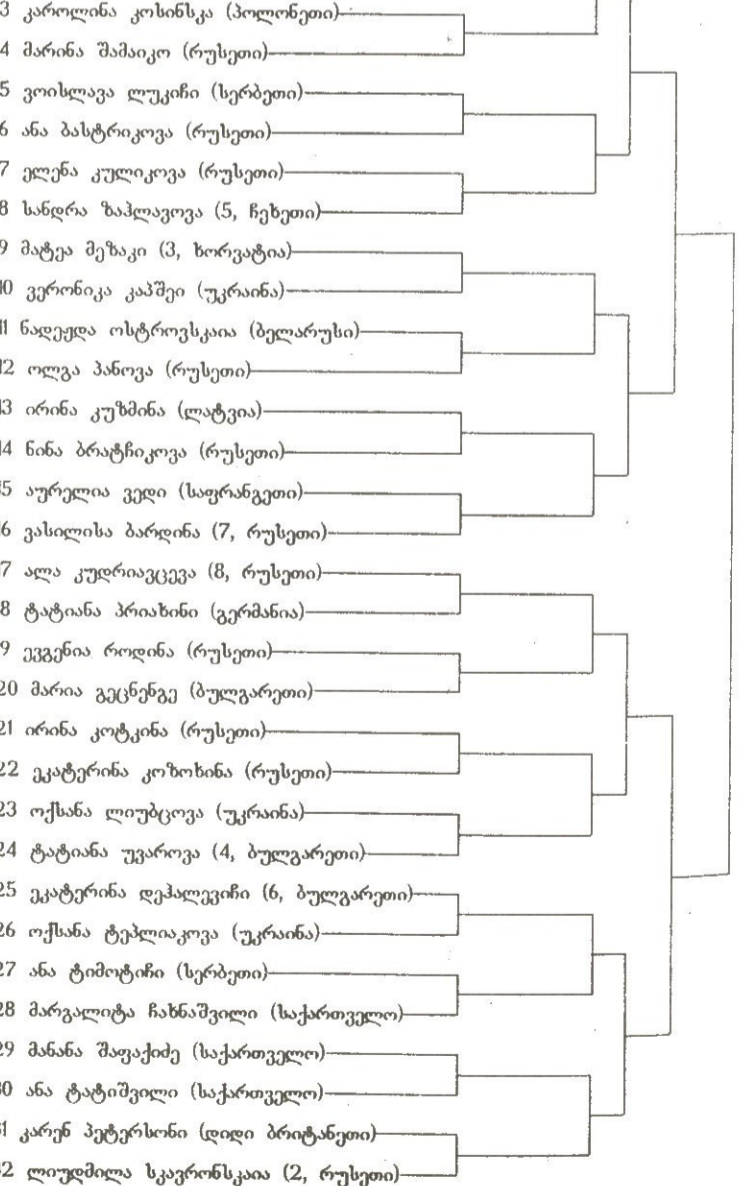 3 კაროლინა კოსინსკა (პოლონეთი)
4 მარინა შამაიკო (რუსეთი)
5 ვოისლავა ლუკიჩი (სერბეთი)
6 ანა ბასტრიკოვა (რუსეთი)
7 ელენა კულიკოვა (რუსეთი)
8 სანდრა ზაჰლავოვა (5, ჩეხეთი)
9 მატეა მეზაკი (3, ხორვატია)
10 ვერონიკა კაპშეი (უკრაინა)
11 ნადეჟდა ოსტროვსკაია (ბელარუსი)
12 ოლგა პანოვა (რუსეთი)
13 ირინა კუზმინა (ლატვია)
14 ნინა ბრატჩიკოვა (რუსეთი)
15 აურელია ვედი (საფრანგეთი)
16 ვასილისა ბარდინა (7, რუსეთი)
17 ალა კუდრიავცევა (8, რუსეთი)
18 ტატიანა პრიახინი (გერმანია)
19 ევგენია როდინა (რუსეთი)
20 მარია გეცნენგე (ბულგარეთი)
21 ირინა კოტკინა (რუსეთი)
22 ეკატერინა კოზოხინა (რუსეთი)
23 ოქსანა ლიუბცოვა (უკრაინა)
24 ტატიანა უვაროვა (4, ბულგარეთი)
25 ეკატერინა დეჰალევიჩი (6, ბულგარეთი)
26 ოქსანა ტეპლიაკოვა (უკრაინა)
27 ანა ტიმოტიჩი (სერბეთი)
28 მარგალიტა ჩახნაშვილი (საქართველო)
29 მანანა შაფაქიძე (საქართველო)
30 ანა ტატიშვილი (საქართველო)
31 კარენ პეტერსონი (დიდი ბრიტანეთი)
32 ლიუდმილა სკავრონსკაია (2, რუსეთი)